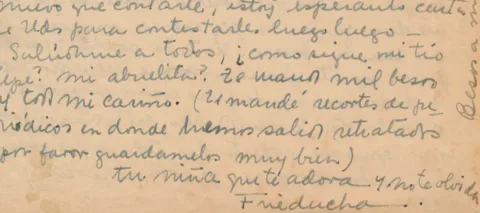 nuevo que contarte, estoy esperando carta
de Uds para contestarles luego luego —
Salúdame a todos, ¿como sigue mi tio
Pepe? mi abuelita? Te mando mil besos
y todo mi cariño. (Te mandé recortes de pe-
riódicos en donde hemos salido retratados
por favor guardamelos muy bien)
tu niña que te adora y no te olvida
Frieducha..
Besos a mi